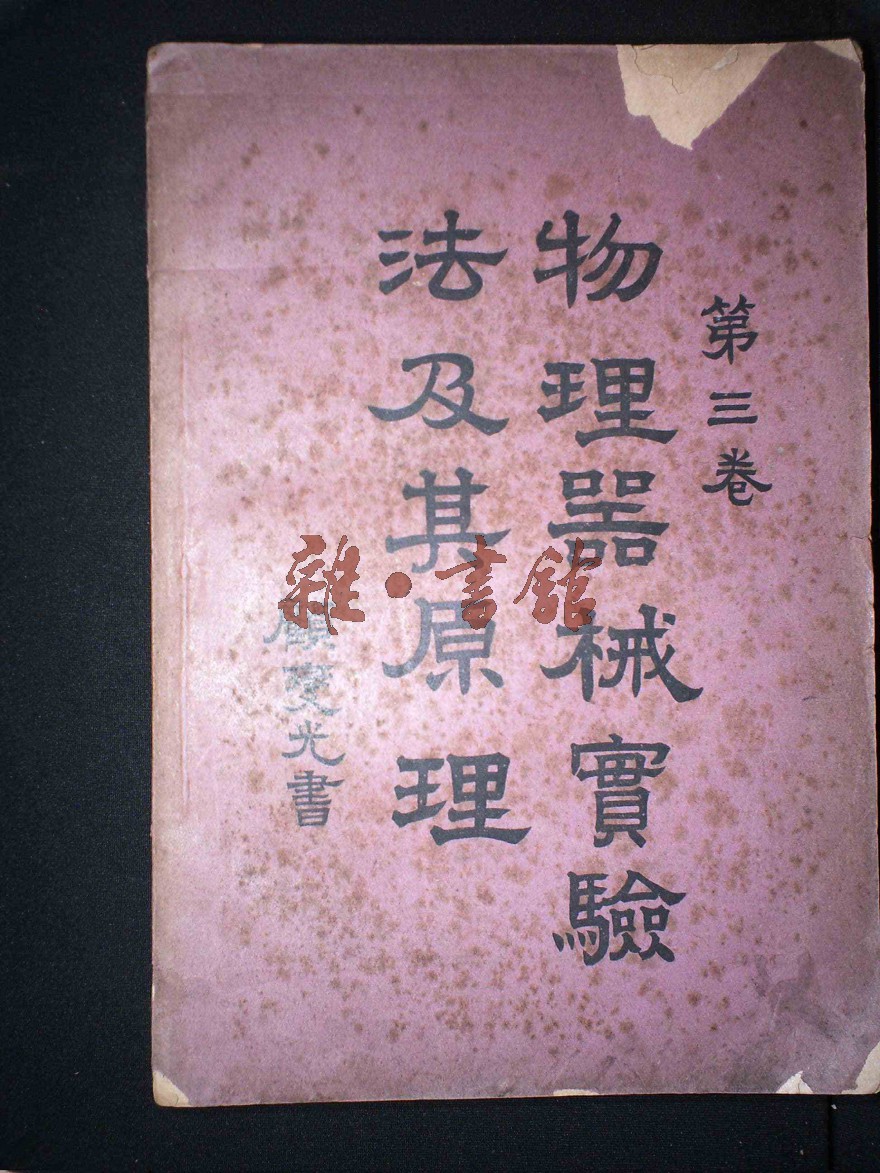 第三卷
物理器械實驗
法及其原理
顧燮光書
雜·書館